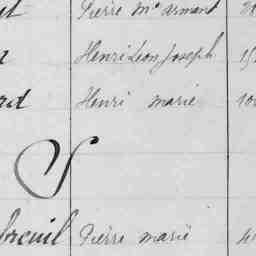 Pierre Me Armand
Henri Leon Joseph 15
rd Henri marie 10
S
breuil Pierre marie